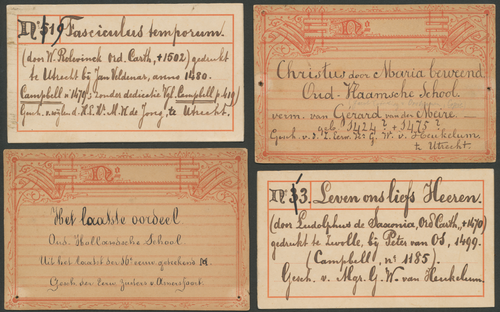 No 519 Fasciculus temporum.
(door W. Rolevinck Ord. Carth. +1502) gedrukt
te Utrecht bij Jan Veldenar, anno 1480.
Campbell no 1479; zonder dedicatie Vgl. Campbell p. 419)
Gesch. v. wijlen d. H. E. W. M. H. de Jong, te Utrecht.
No
Christus door Maria beweend
Oud-Vlaamsche School.
verm. van Gerard van der Meire.
geb. 1424? + 1475?
Gesch. v. d. Z. Eerw. H. G. W. v. Heukelum.
te Utrecht.
No
Het laatste oordeel
Oud. Hollandsche School.
Uit het laatst der 16e eeuw, geteekend
Gesch. der Eerw. Paters v. Amersfoort.
No 33. Leven ons liefs Heeren.
(door Ludolphus de Saxonia, Ord Carth., +1470)
gedrukt te Zwolle, bij Peter van OS, 1499.
(Campbell, no 1185).
Gesch. v. Mgr. G. W. van Heukelum.